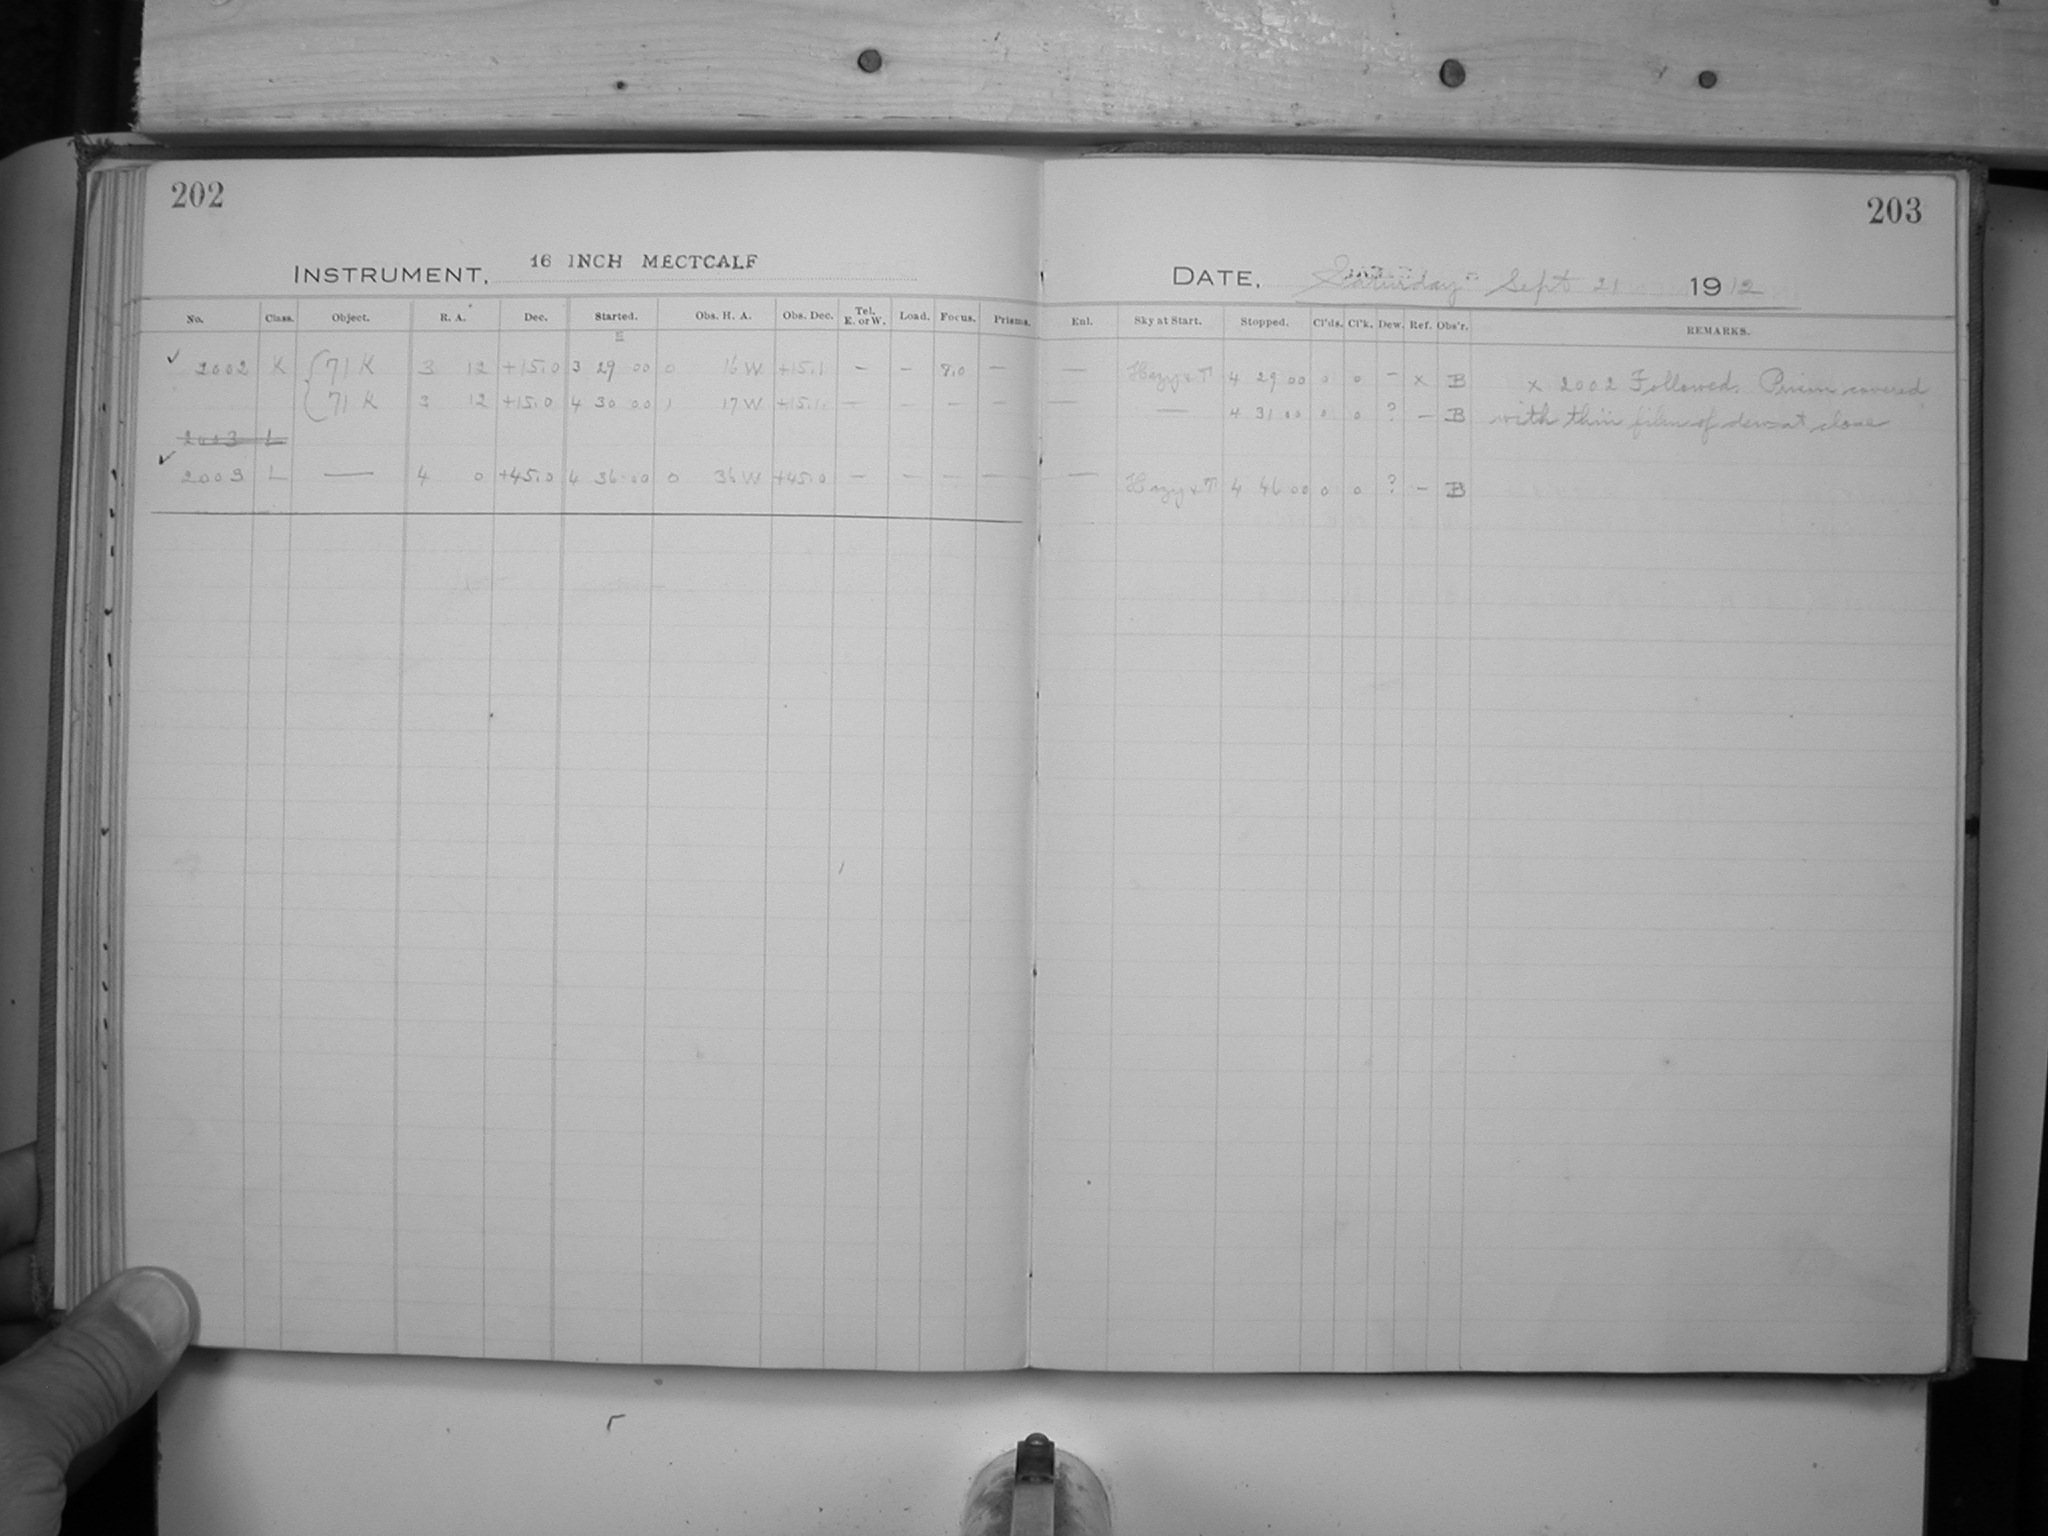 202
203
INSTRUMENT, 16 INCH MECTCALF
DATE, Saturday Sept 21 1912
No. Class. Object. R. A. Dec. Started. Obs. H. A. Obs. Dec. Tel. E. or W. Load. Focus. Prisms. Enl. Sky at Start. Stopped. Cl'ds. Cl'k. Dew. Ref. Obs'r. REMARKS.
E
✓ 2002 K { 71 K 3 12 +15.0 3 29 00 0 16 W +15.1 — — 8.0 — — Hazy & T 4 29 00 0 0 — x B x 2002 Followed. Prism covered
71 K 3 12 +15.0 4 30 00 1 17 W +15.1 — — — — — — 4 31 00 0 0 ? — B with thin film of dew at close
2003 L
✓ 2003 L — 4 0 +45.0 4 36 00 0 36 W +45.0 — — — — — Hazy & T 4 46 00 0 0 ? — B